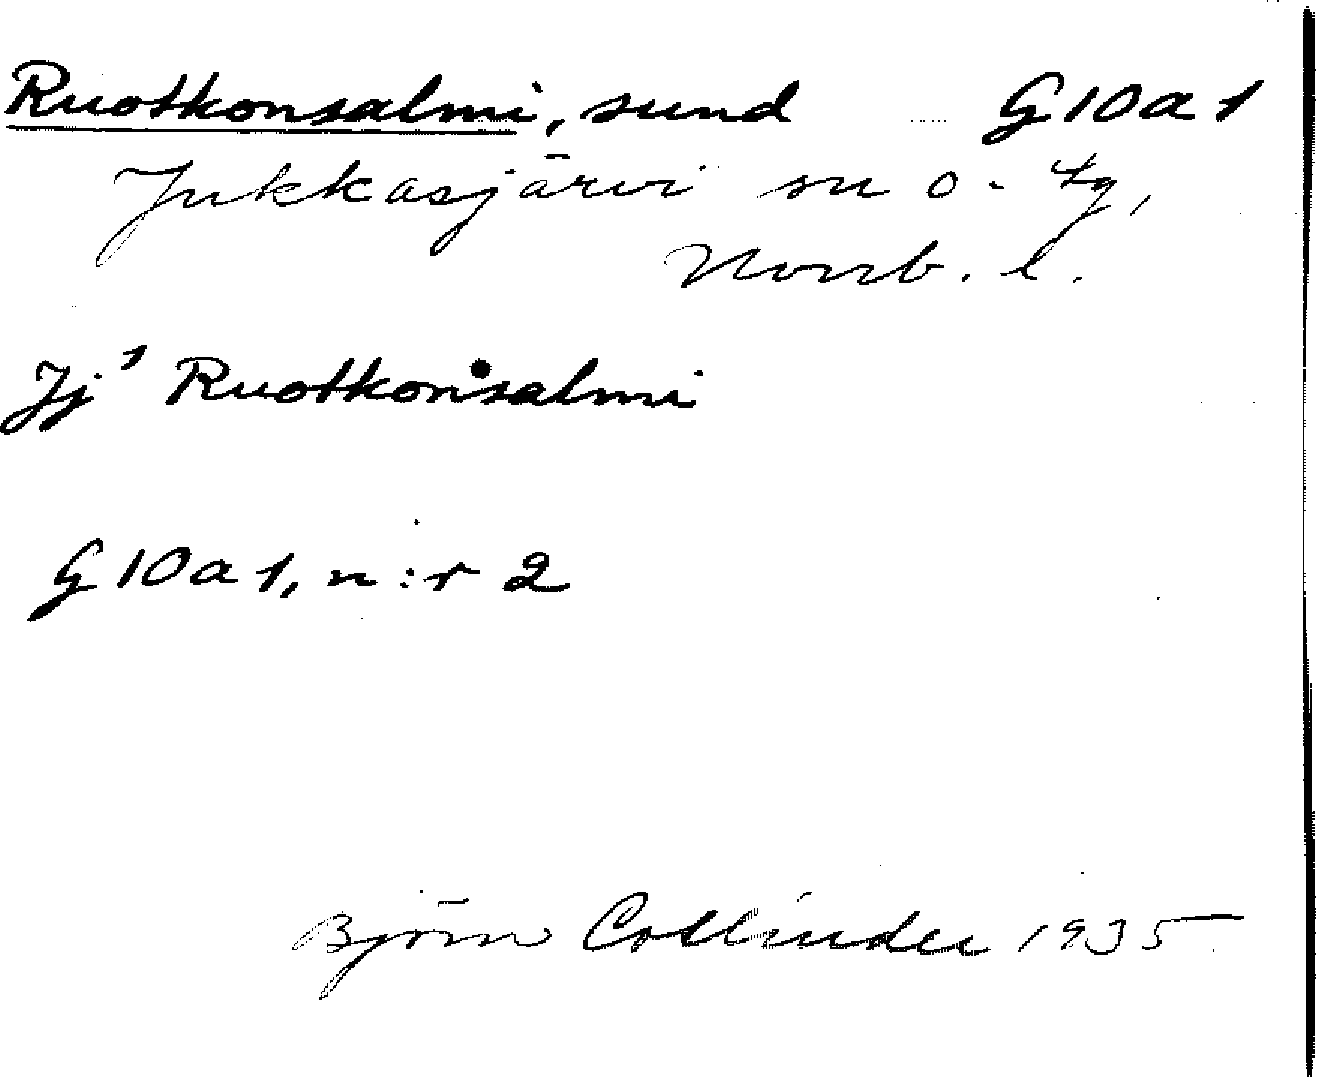 Ruotkonsalmi, sund G10a1
Jukkasjärvi sn o. tg,
Norrb. l.
Jj¹ Ruotkonsalmi
G10a1, n:r 2
Björn Collinder 1935